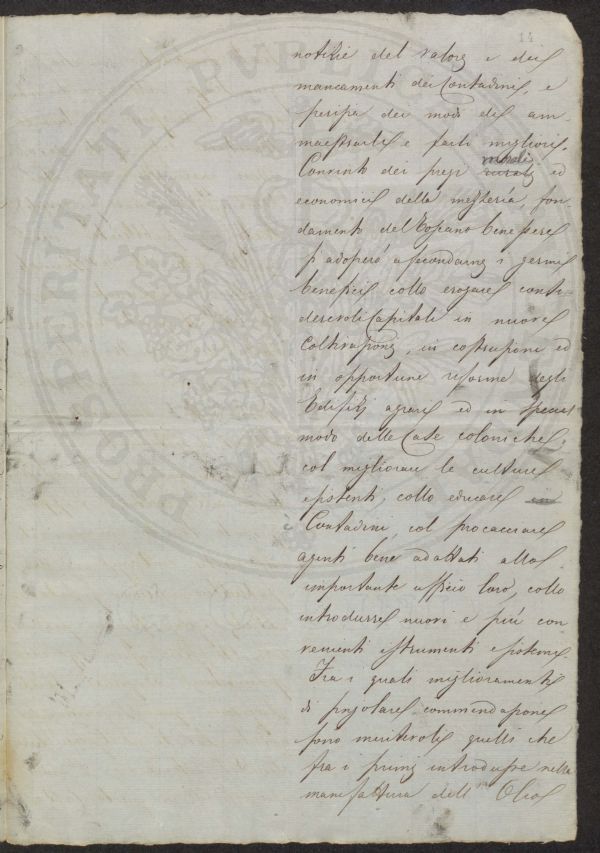 14
notizie del valore e dei
mancamenti dei Contadini, e
perizia dei modi di am-
maestrarli e farli migliori.
Convinto dei pregi morali ed
economici della mezzeria, fon-
damento del Toscano benessere
si adoperò a fecondarne i germi
benefici collo erogare consi-
derevoli Capitali in nuove
Coltivazioni, in costruzioni ed
in opportune riforme degli
Edifizj agrari ed in special
modo delle Case coloniche;
col migliorare le culture
esistenti, collo educare
Contadini, col procacciare
agenti bene adattati alla
importante ufficio loro, collo
introdurre nuovi e più con
venienti istrumenti e sistemi.
Fra i quali miglioramenti
di singolare commendazione
sono meritevoli quelli che
fra i primi introdusse nella
manifattura dell' Olio
PROSPERITATI PUBLICAE